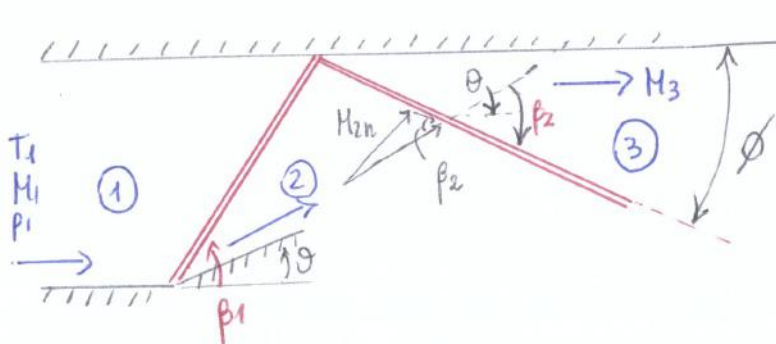 T1
M1
p1
1
β1
2
ϑ
M2n
β2
θ
β2
M3
3
ϕ